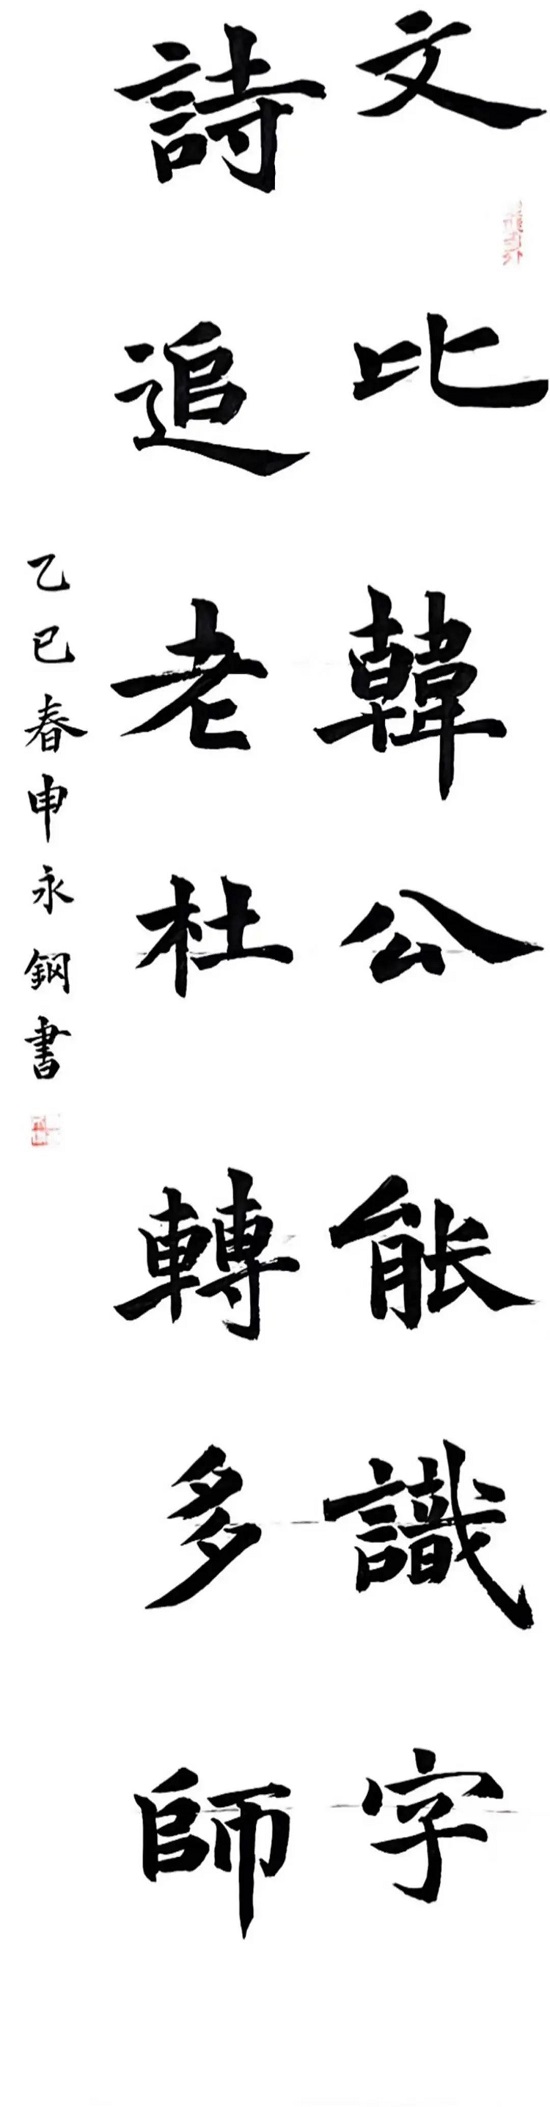 文比韓公能識字
詩追老杜轉多師
乙巳春申永鋼書